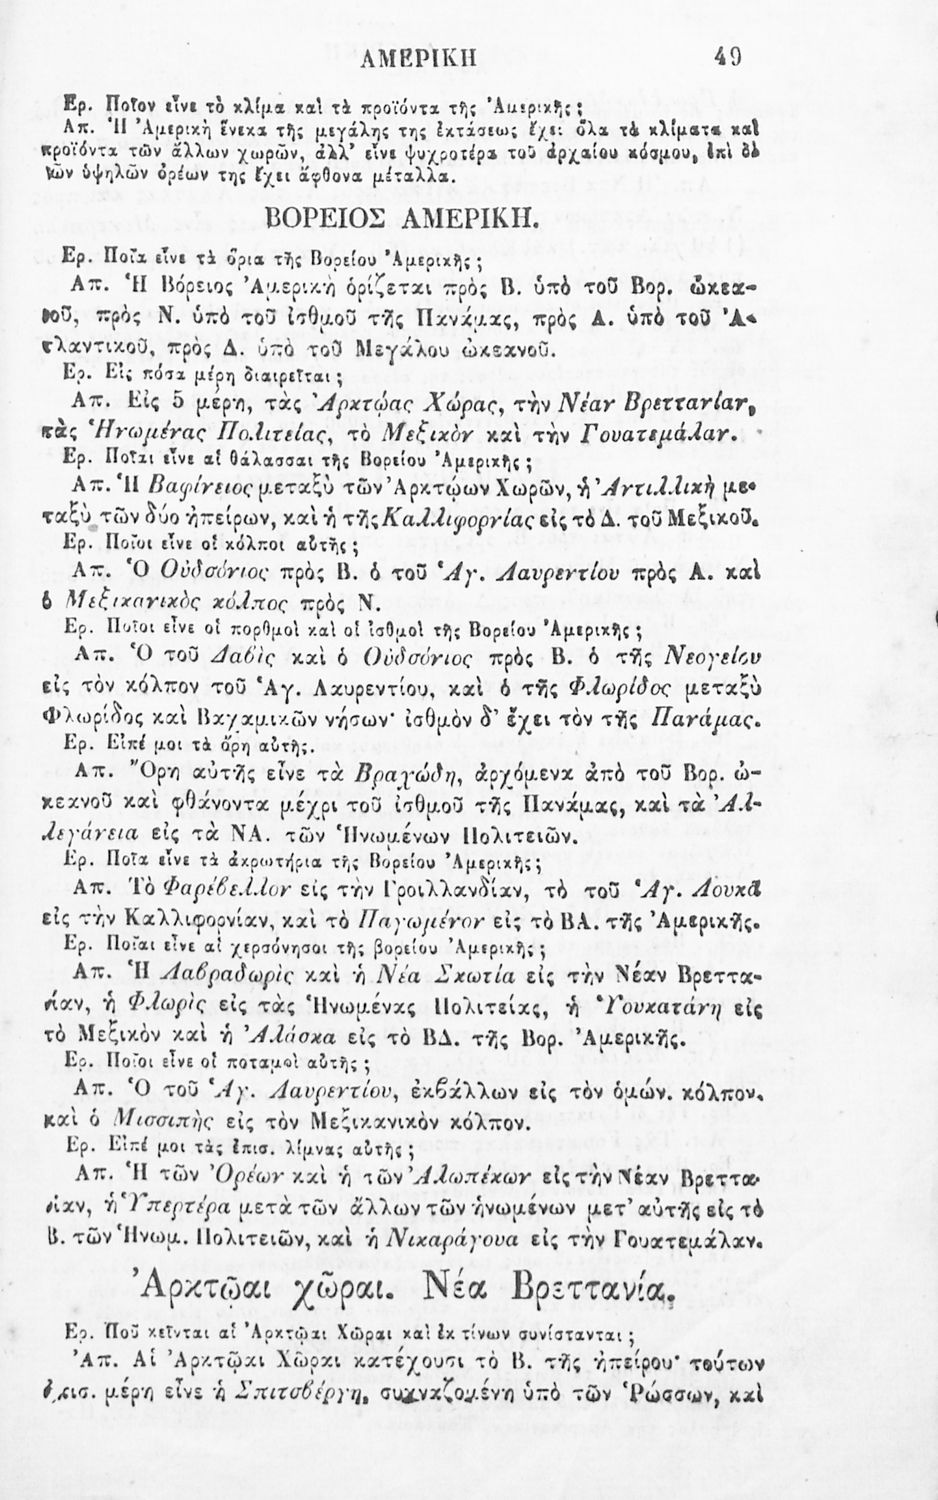 ΑΜΕΡΙΚΗ 49
Ερ. Ποῖον εἶνε τὸ κλίμα καὶ τὰ προϊόντα τῆς Ἀμερικῆς ;
Απ. Ἡ Ἀμερικὴ ἕνεκα τῆς μεγάλης της ἐκτάσεως ἔχει ὅλα τὰ κλίματα καὶ
προϊόντα τῶν ἄλλων χωρῶν, ἀλλ' εἶνε ψυχροτέρα τοῦ ἀρχαίου κόσμου, ἐπὶ δὲ
τῶν ὑψηλῶν ὀρέων της ἔχει ἄφθονα μέταλλα.
ΒΟΡΕΙΟΣ ΑΜΕΡΙΚΗ.
Ερ. Ποῖα εἶνε τὰ ὅρια τῆς Βορείου Ἀμερικῆς ;
Απ. Ἡ Βόρειος Ἀμερικὴ ὁρίζεται πρὸς Β. ὑπὸ τοῦ Βορ. ὠκεα-
νοῦ, πρὸς Ν. ὑπὸ τοῦ ἰσθμοῦ τῆς Πανάμας, πρὸς Α. ὑπὸ τοῦ Ἀ-
τλαντικοῦ, πρὸς Δ. ὑπὸ τοῦ Μεγάλου ὠκεανοῦ.
Ερ. Εἰς πόσα μέρη διαιρεῖται ;
Απ. Εἰς 5 μέρη, τὰς Ἀρκτῴας Χώρας, τὴν Νέαν Βρεττανίαν,
τὰς Ἡνωμένας Πολιτείας, τὸ Μεξικὸν καὶ τὴν Γουατεμάλαν.
Ερ. Ποῖαι εἶνε αἱ θάλασσαι τῆς Βορείου Ἀμερικῆς ;
Απ. Ἡ Βαφίνειος μεταξὺ τῶν Ἀρκτῴων Χωρῶν, ἡ Ἀντιλλικὴ με-
ταξὺ τῶν δύο ἠπείρων, καὶ ἡ τῆς Καλλιφορνίας εἰς τὸ Δ. τοῦ Μεξικοῦ.
Ερ. Ποῖοι εἶνε οἱ κόλποι αὐτῆς ;
Απ. Ὁ Οὐδσόνιος πρὸς Β. ὁ τοῦ Ἁγ. Λαυρεντίου πρὸς Α. καὶ
ὁ Μεξικανικὸς κόλπος πρὸς Ν.
Ερ. Ποῖοι εἶνε οἱ πορθμοὶ καὶ οἱ ἰσθμοὶ τῆς Βορείου Ἀμερικῆς ;
Απ. Ὁ τοῦ Δαβὶς καὶ ὁ Οὐδσόνιος πρὸς Β. ὁ τῆς Νεογείου
εἰς τὸν κόλπον τοῦ Ἁγ. Λαυρεντίου, καὶ ὁ τῆς Φλωρίδος μεταξὺ
Φλωρίδος καὶ Βαχαμικῶν νήσων· ἰσθμὸν δ' ἔχει τὸν τῆς Πανάμας.
Ερ. Εἰπέ μοι τὰ ὄρη αὐτῆς.
Απ. Ὄρη αὐτῆς εἶνε τὰ Βραχώδη, ἀρχόμενα ἀπὸ τοῦ Βορ. ὠ-
κεανοῦ καὶ φθάνοντα μέχρι τοῦ ἰσθμοῦ τῆς Πανάμας, καὶ τὰ Ἀλ-
λεγάνεια εἰς τὰ ΝΑ. τῶν Ἡνωμένων Πολιτειῶν.
Ερ. Ποῖα εἶνε τὰ ἀκρωτήρια τῆς Βορείου Ἀμερικῆς ;
Απ. Τὸ Φαρέβελλον εἰς τὴν Γροιλλανδίαν, τὸ τοῦ Ἁγ. Λουκᾶ
εἰς τὴν Καλλιφορνίαν, καὶ τὸ Παγωμένον εἰς τὸ ΒΑ. τῆς Ἀμερικῆς.
Ερ. Ποῖαι εἶνε αἱ χερσόνησοι τῆς βορείου Ἀμερικῆς ;
Απ. Ἡ Λαβραδωρὶς καὶ ἡ Νέα Σκωτία εἰς τὴν Νέαν Βρεττα-
νίαν, ἡ Φλωρὶς εἰς τὰς Ἡνωμένας Πολιτείας, ἡ Ὑουκατάνη εἰς
τὸ Μεξικὸν καὶ ἡ Ἀλάσκα εἰς τὸ ΒΔ. τῆς Βορ. Ἀμερικῆς.
Ερ. Ποῖοι εἶνε οἱ ποταμοὶ αὐτῆς ;
Απ. Ὁ τοῦ Ἁγ. Λαυρεντίου, ἐκβάλλων εἰς τὸν ὁμών. κόλπον,
καὶ ὁ Μισσιπὴς εἰς τὸν Μεξικανικὸν κόλπον.
Ερ. Εἰπέ μοι τὰς ἐπισ. λίμνας αὐτῆς ;
Απ. Ἡ τῶν Ὀρέων καὶ ἡ τῶν Ἀλωπέκων εἰς τὴν Νέαν Βρεττα-
νίαν, ἡ Ὑπερτέρα μετὰ τῶν ἄλλων τῶν ἡνωμένων μετ' αὐτῆς εἰς τὸ
Β. τῶν Ἡνωμ. Πολιτειῶν, καὶ ἡ Νικαράγουα εἰς τὴν Γουατεμάλαν.
Ἀρκτῷαι χῶραι. Νέα Βρεττανία.
Ερ. Ποῦ κεῖνται αἱ Ἀρκτῷαι Χῶραι καὶ ἐκ τίνων συνίστανται ;
Ἀπ. Αἱ Ἀρκτῷαι Χῶραι κατέχουσι τὸ Β. τῆς ἠπείρου· τούτων
ἐπισ. μέρη εἶνε ἡ Σπιτσβέργη, συχναζομένη ὑπὸ τῶν Ῥώσσων, καὶ